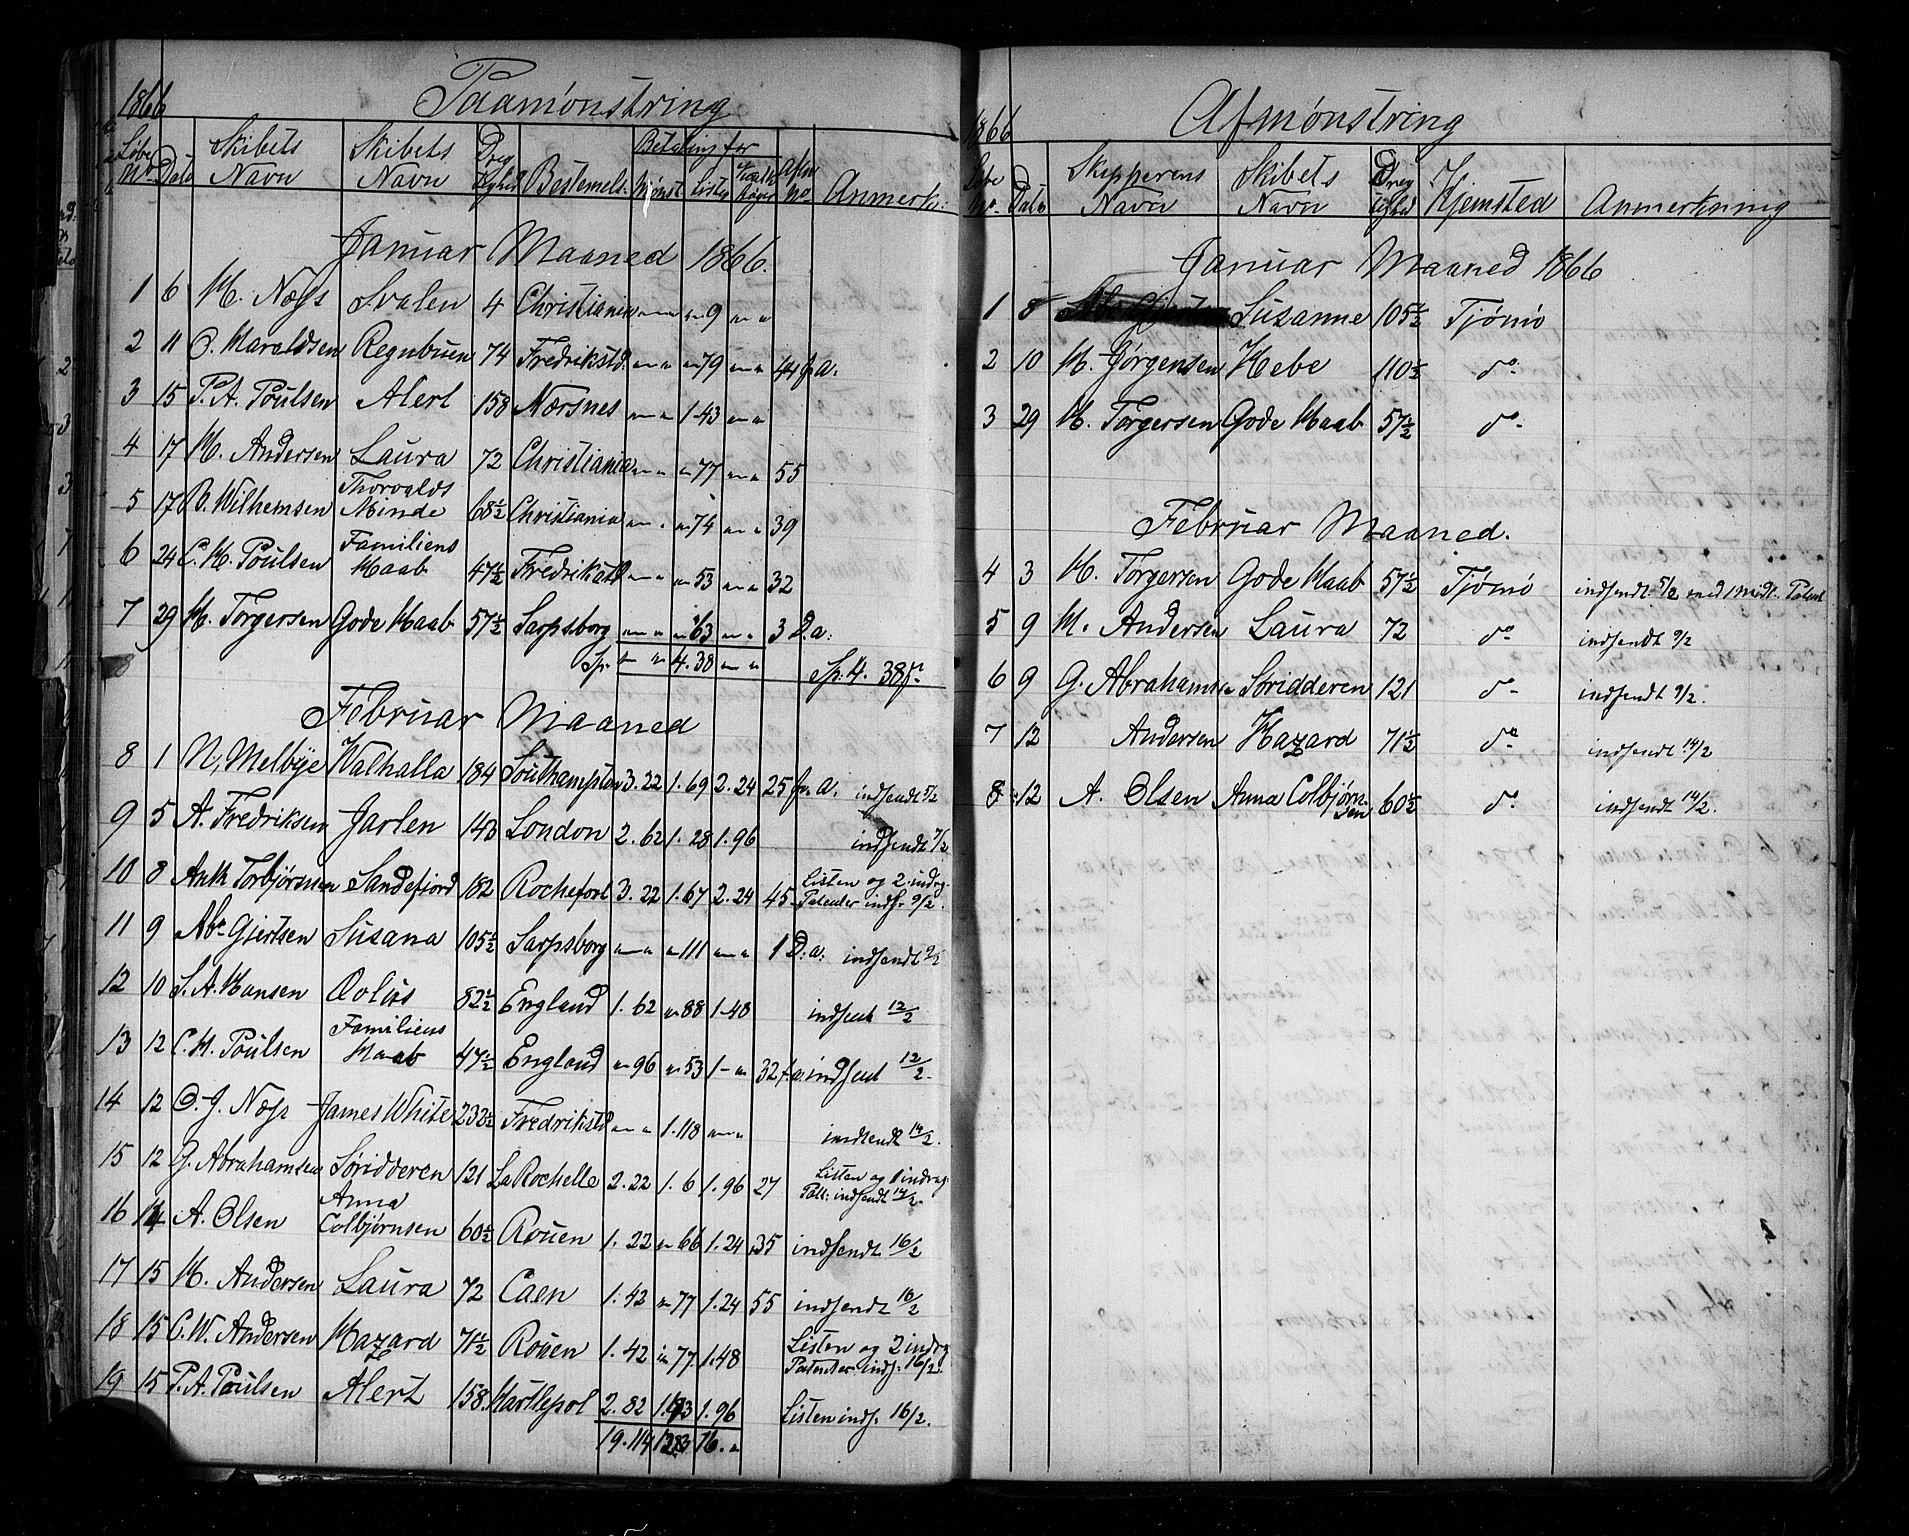 1866 Paamønstring
Løbe No Dato Skibets Navn Skibets Navn Dreg tighed Bestemels: Betaling for Mønst Liste Afm No Anmerk:
Januar Maaned 1866.
1 6 H. Næss Svalen 4 Christiania " " " 9 " "
2 11 O. Haraldsen Regnbuen 74 Fredrikstd. " " " 79 " " 44 f. a.
3 15 P. A. Poulsen Alert 158 Nærsnes " " 1.43 " "
4 17 H. Andersen Laura 72 Christiania " " " 77 " " 55
5 17 B. Wilhemsen Thorvalds Minde 68½ Christiania " " " 74 " " 39
6 24 C. H. Poulsen Familiens Haab 47½ Fredrikstd " " " 53 " " 32
7 29 H. Torgersen Gode Haab 57½ Sarpsborg " " " 63 " " 3 D. a:
Sp. " " 4. 38 " " Sp. 4. 38 f.
Februar Maaned
8 1 N. Melbye Walhalla 184 Southampton 3. 22 1. 69 2. 24 25 f. a. indsendt 5/2
9 5 A. Fredriksen Jarlen 143 London 2. 62 1. 28 1. 96 indsendt 7/2
10 8 Anth Torbjørnsen Sandefjord 182 Rochefort 3. 22 1. 67 2. 24 45 Listen og 2 indrog. Patenter inds. 9/2.
11 9 Abr. Gjertsen Susana 105½ Sarpsborg " " " 111 " " 1 D: a: indsendt 9/2
12 10 S. A. Hansen Æolus 82½ England 1. 62 " 88 1. 48 indsent 12/2
13 12 C. H. Poulsen Familiens Haab 47½ England " 96 " 53 1 - " 32 f. a. indsent 12/2.
14 12 O. J. Næss James White 232½ Fredrikstd " " 1. 118 " " indsendt 14/2.
15 12 G. Abrahamsen Søridderen 121 La Rochelle 2. 22 1. 6 1. 96 27 Listen og 1 indrog. Patt: indsendt 14/2.
16 14 A. Olsen Anna Colbjørnsen 60½ Rouen 1. 22 " 66 1. 24 35 indsendt 16/2
17 15 H. Andersen Laura 72 Caen 1. 42 " 77 1. 24 55 indsendt 16/2
18 15 C. W. Andersen Hazard 71½ Rouen 1. 42 " 77 1. 48 Listen og 2 indrog Patenter inds: 16/2.
19 15 P. A. Poulsen Alert 158. Hartlepol 2. 82 1. 43 1. 96 Listen inds: 16/2.
19. 114 16. "
1866 Afmønstring
Løbe No. Dato Skipperens Navn Skibets Navn Dreg tighed Hjemsted Anmerkning
Januar Maaned 1866
1 8 Susanne 105½ Tjømø
2 10 H. Jørgensen Hebe 110½ do
3 29 H. Torgersen Gode Haab 57½ do
Februar Maaned.
4 3 H. Torgersen Gode Haab 57½ Tjømø indsendt 5/2 med 1 midl. Patent
5 9 H. Andersen Laura 72 do indsendt 9/2
6 9 G. Abrahamsen Søridderen 121 do indsendt 9/2.
7 12 Andersen Hazard 71½ do indsendt 14/2
8 12 A. Olsen Anna Colbjørnsen 60½ do indsendt 14/2.